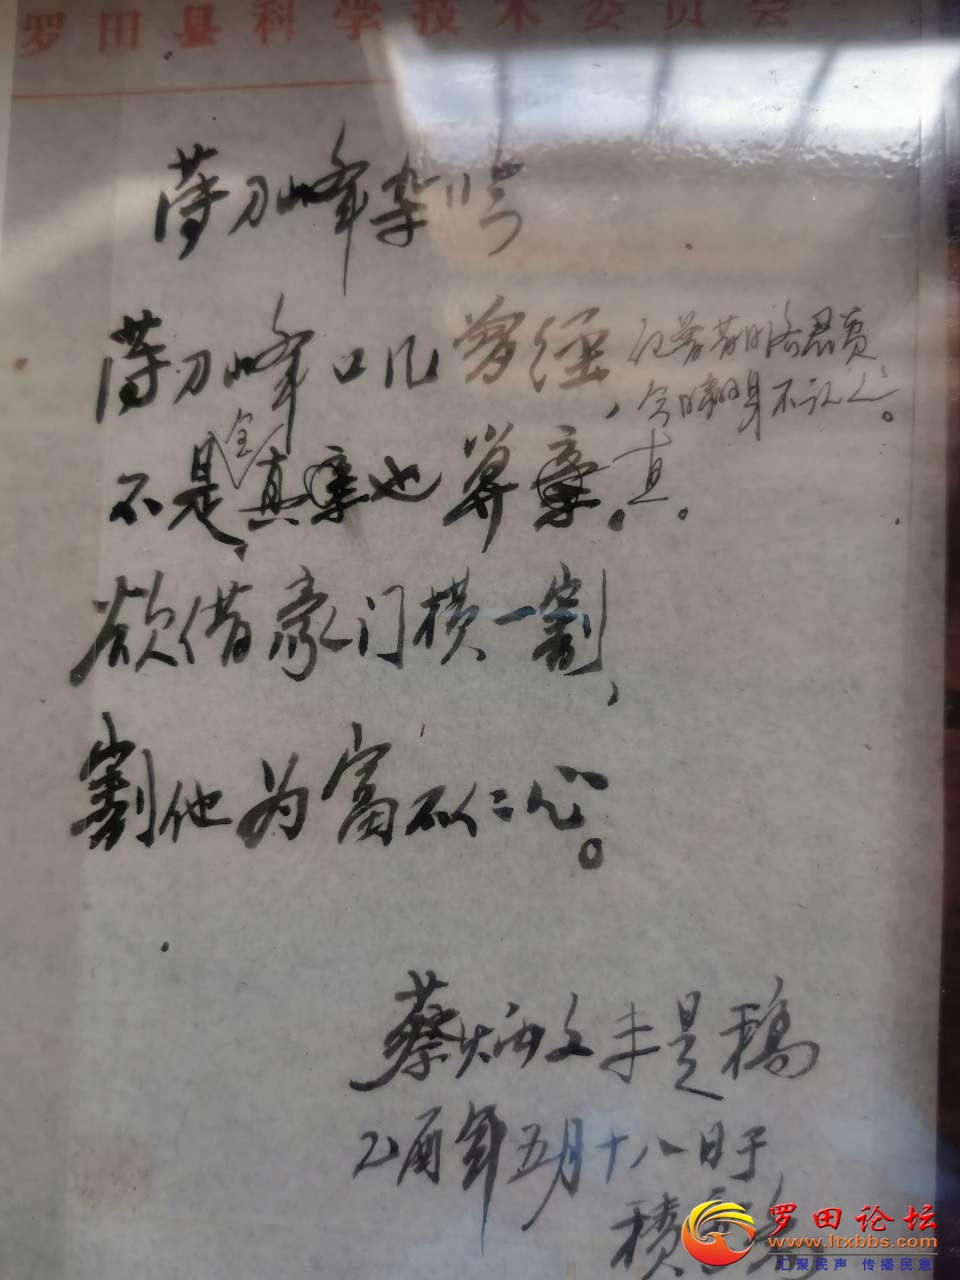 罗田县科学技术委员会
薄刀峰杂咢
薄刀峰口几曾经，
今时 身不认人。
不是全真 也算 。真。
欲借豪门横一割，
割他为富不仁心。
蔡炳文未是稿
乙酉年五月十八日于
积
罗田论坛
www.ltxbbs.com
汇聚民声 传播民意